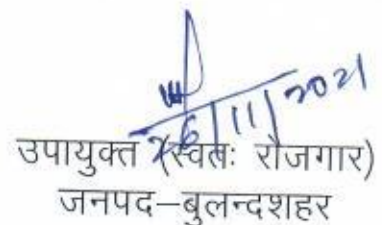 26/11/2021
उपायुक्त (स्वतः रोजगार)
जनपद–बुलन्दशहर